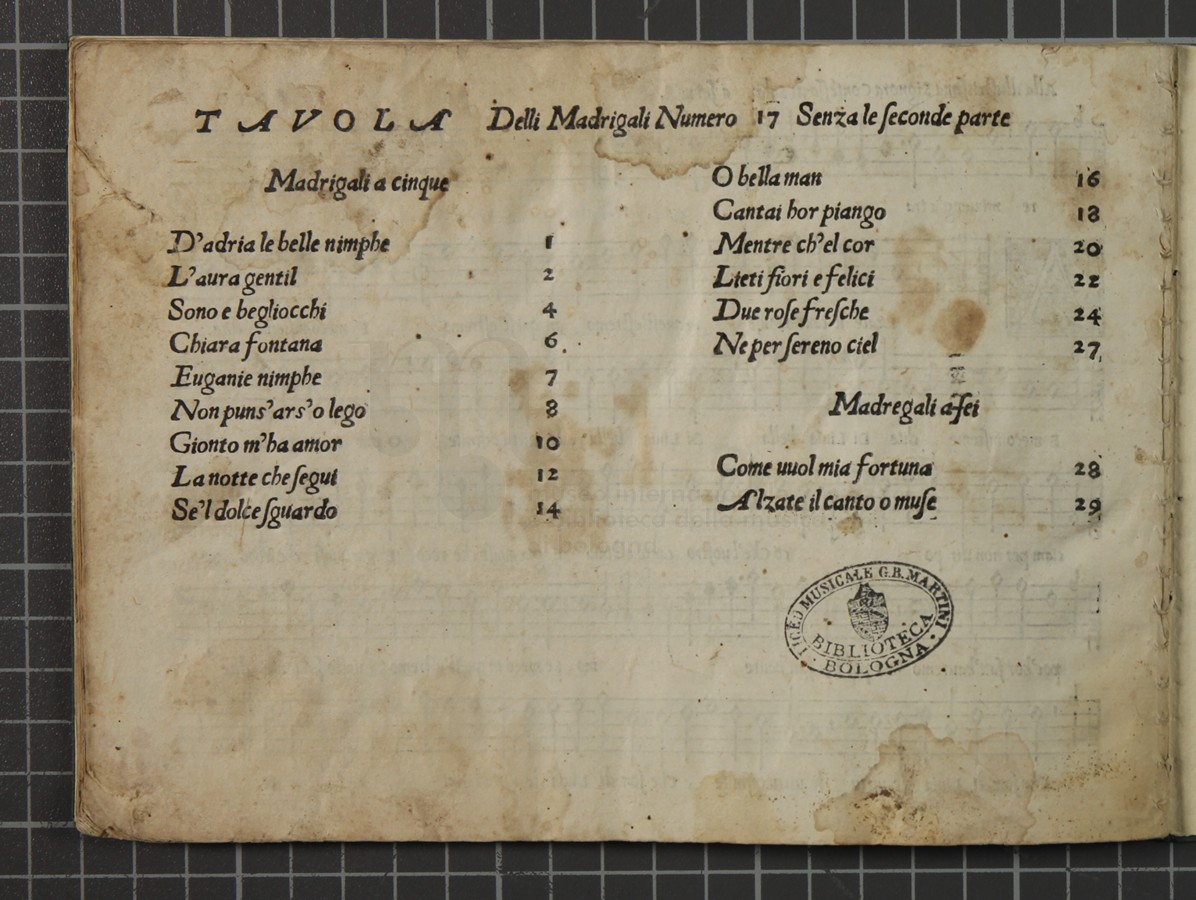 TAVOLA Delli Madrigali Numero 17 Senza le ſeconde parte
Madrigali a cinque
D'adria le belle nimphe 1
L'aura gentil 2
Sono e begliocchi 4
Chiara fontana 6
Euganie nimphe 7
Non puns'ars'o lego 8
Gionto m'ha amor 10
La notte che ſegui 12
Se'l dolce ſguardo 14
O bella man 16
Cantai hor piango 18
Mentre ch'el cor 20
Lieti fiori e felici 22
Due roſe freſche 24
Ne per ſereno ciel 27
Madregali a ſei
Come uuol mia fortuna 28
Alzate il canto o muſe 29
LICEO MUSICALE G.B. MARTINI
BIBLIOTECA
BOLOGNA